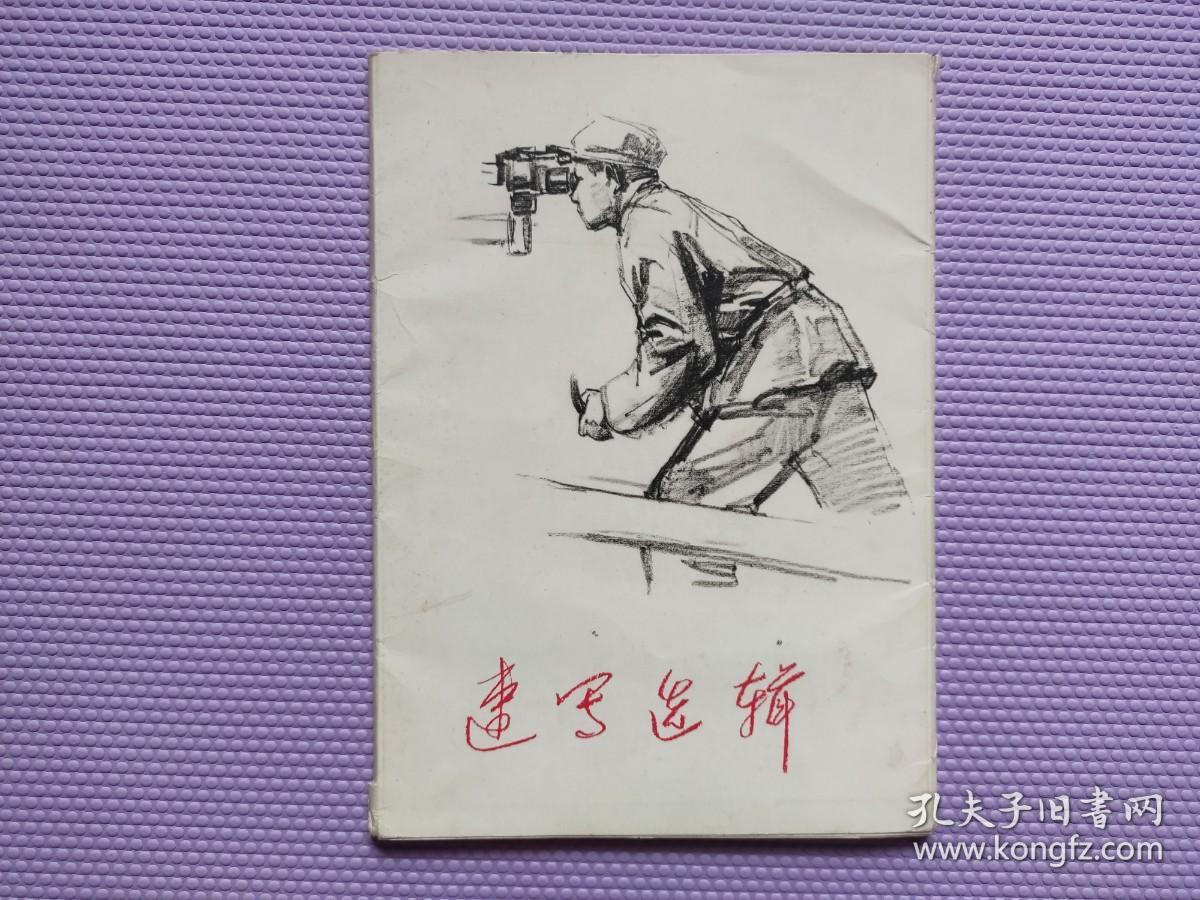 速写选辑
孔夫子旧書网
www.kongfz.com